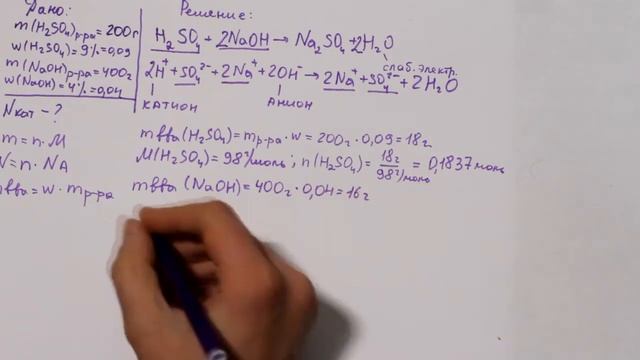 Дано:
m(H₂SO₄)р-ра = 200г
w(H₂SO₄) = 9% = 0,09
m(NaOH)р-ра = 400г
w(NaOH) = 4% = 0,04
Nкат - ?
m = n · M
N = n · NA
mвва = w · mр-ра
Решение:
H₂SO₄ + 2NaOH → Na₂SO₄ + 2H₂O
слаб. электр.
2H⁺ + SO₄²⁻ + 2Na⁺ + 2OH⁻ → 2Na⁺ + SO₄²⁻ + 2H₂O
катион Анион
mвва(H₂SO₄) = mр-ра · w = 200г · 0,09 = 18г
M(H₂SO₄) = 98г/моль ; n(H₂SO₄) = 18г / 98г/моль = 0,1837 моль
mвва (NaOH) = 400г · 0,04 = 16г